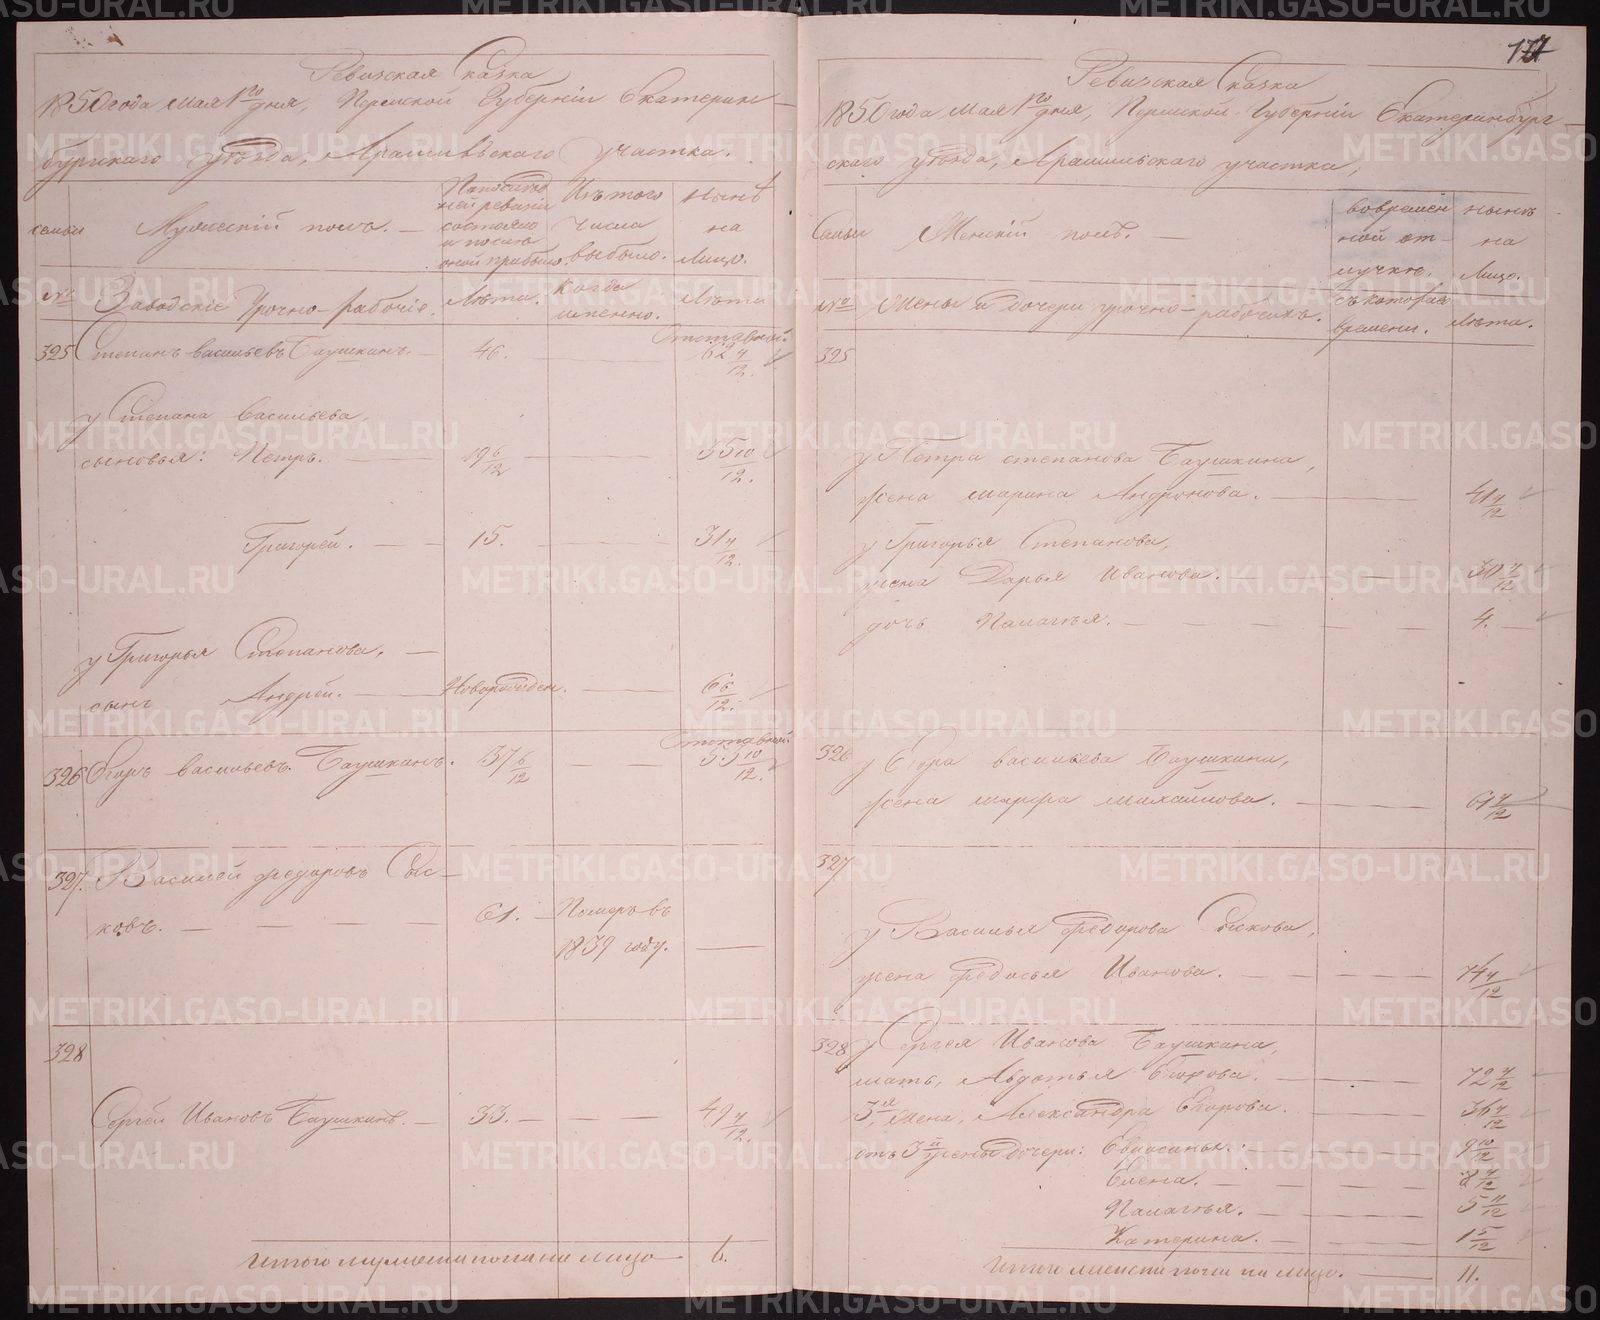 Ревизская Сказка
1850 года мая 1го дня, Пермской Губерніи Екатерин-
бургскаго уѣзда, Арамильскаго участка.
семьи
Мужескій полъ. —
По послѣд
ней ревизіи
состояло
и послѣ
оной прибыло.
Изъ того
числа
выбыло.
Нынѣ
на
лицо.
№
Заводскіе Урочно-рабочіе.
Лѣта.
Когда
именно.
Лѣта
325 Степанъ Васильевъ Баушкинъ. — 46. — — Отставной. 62 4/12.
у Степана Васильева,
сыновья: Петръ. — 19 6/12 — — 35 10/12.
Григорей. — 15. — — 31 4/12.
у Григорья Степанова, —
сынъ Андрей. — Новорожден. — 6 6/12.
326 Егоръ Васильевъ Баушкинъ. 37 6/12 — — Отставной. 53 10/12.
327. Василей Федоровъ Сыс-
ковъ. — — — 61. — Померъ въ
1839 году. —
328
Сергей Ивановъ Баушкинъ. — 33. — — — 49 4/12.
Итого мужеска пола на лицо — 6.
177
Ревизская Сказка
1850 года мая 1го дня, Пермской Губерніи Екатеринбург-
скаго уѣзда, Арамильскаго участка,
Семьи
Женскій полъ. —
Во времен
ной от-
лучкѣ.
Нынѣ
на
лицо.
№ Жены и дочери урочно-рабочихъ.
Съ котораго
времени.
Лѣта.
325
у Петра Степанова Баушкина,
жена Марина Андронова. — — — 41 4/12
у Григорья Степанова,
жена Дарья Иванова. — — — 30 4/12
дочь Палагья. — — — 4. —
326 у Егора Васильева Баушкина,
жена Марфа Михайлова. — — — 61 4/12
327.
у Василья Федорова Сыскова,
жена Федосья Иванова. — — — 74 4/12
328 у Сергея Иванова Баушкина,
мать, Авдотья Егорова. — — — 72 4/12
3я жена, Александра Егорова. — — — 36 4/12
отъ 3й жены дочери: Евпросинья. — — — 9 10/12
Елена. — — — 8 4/12
Палагья. — — — 5 11/12
Катерина. — — — 1 5/12
Итого женска пола на лицо. — 11.
METRIKI.GASO-URAL.RU